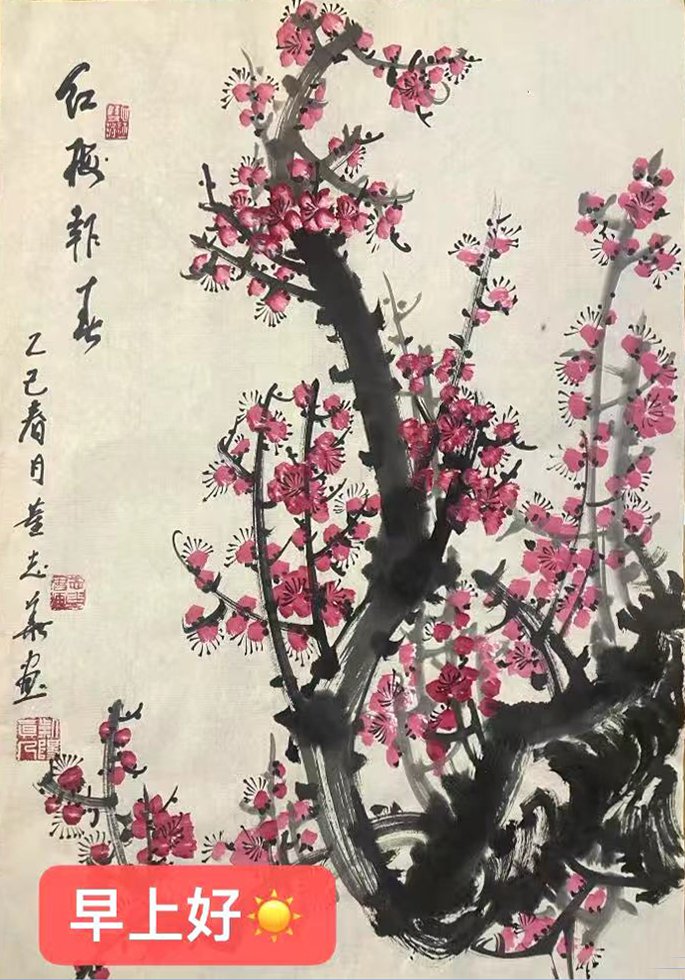 红梅報春
乙巳春月董志華画
早上好☀️